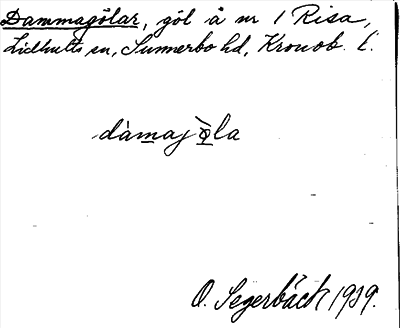 Dammagölar, göl å nr 1 Risa,
Lidhults sn, Sunnerbo hd, Kronob. l.
dàmajö̀la
O. Segerbäck 1939.